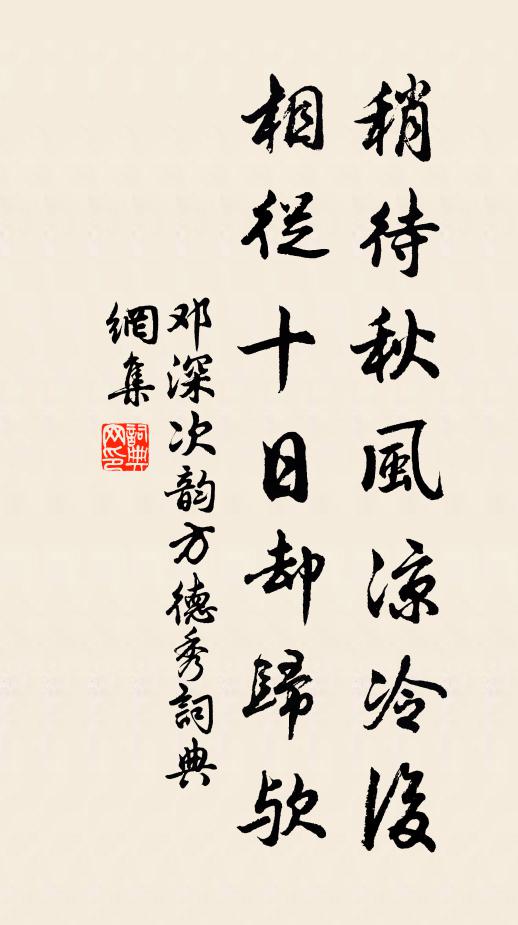 稍待秋風涼冷後
相從十日却歸欤
邓深次韵方德秀詞典
網集
詞典
网印